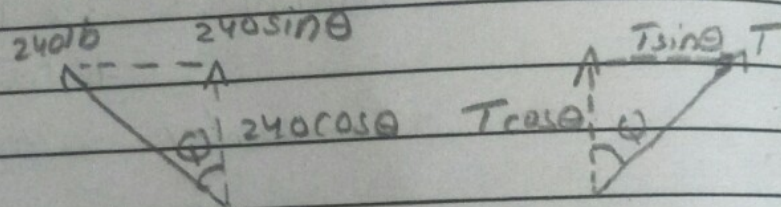 240lb 240sinθ Tsinθ T
θ 240cosθ Tcosθ θ